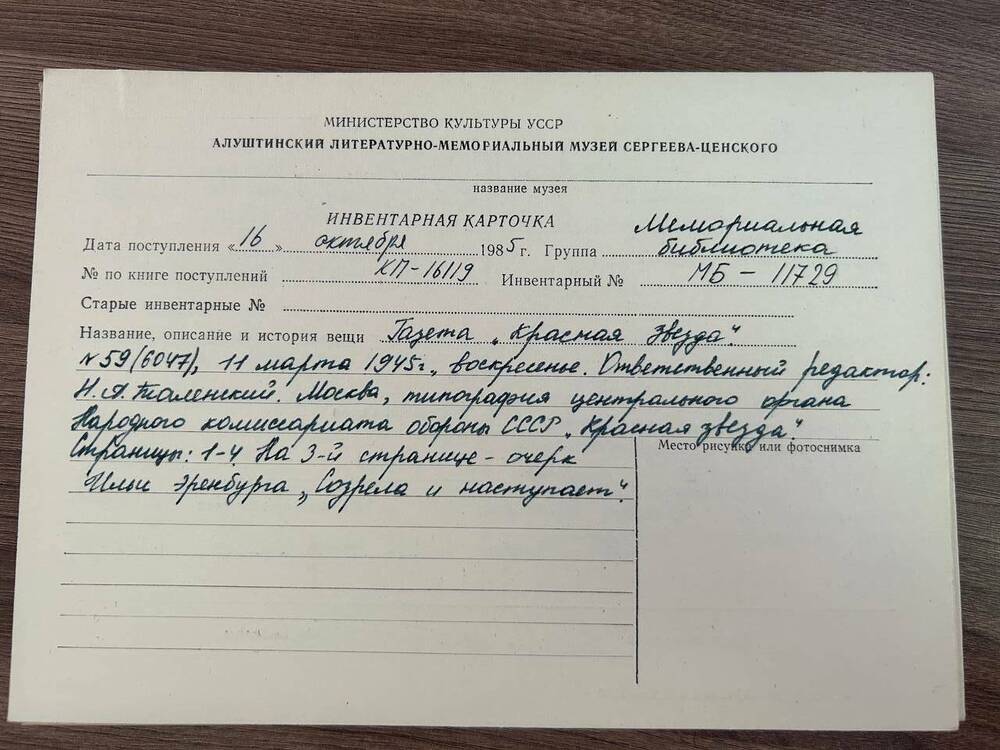 МИНИСТЕРСТВО КУЛЬТУРЫ УССР
АЛУШТИНСКИЙ ЛИТЕРАТУРНО-МЕМОРИАЛЬНЫЙ МУЗЕЙ СЕРГЕЕВА-ЦЕНСКОГО
название музея
ИНВЕНТАРНАЯ КАРТОЧКА
Дата поступления «16» октября 1985 г. Группа Мемориальная библиотека
№ по книге поступлений КП-16119 Инвентарный № МБ - 11729
Старые инвентарные №
Название, описание и история вещи Газета „Красная звезда".
№ 59 (6047), 11 марта 1945г., воскресенье. Ответственный редактор:
Н.А. Таленский. Москва, типография центрального органа
Народного комиссариата обороны СССР „Красная звезда".
Место рисунка или фотоснимка
Страницы: 1-4. На 3-й странице - очерк
Ильи Эренбурга „Созрела и наступает".